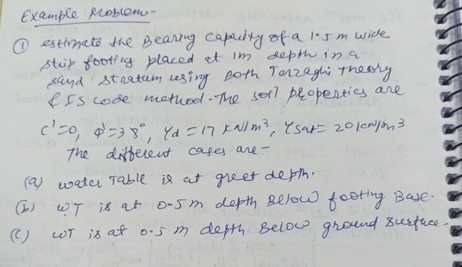 Example Problem-
① Estimate the Bearing capacity of a 1.5 m wide
strip footing placed at 1m depth in a
sand stratum using both Terzaghi theory
& IS code method. The soil properties are
C'=0, φ'=38°, γd = 17 kN/m³, γsat = 20 kN/m³
The different cases are-
(a) water Table is at great depth.
(b) WT is at 0.5 m depth Below footing Base.
(c) WT is at 0.5 m depth Below ground surface.